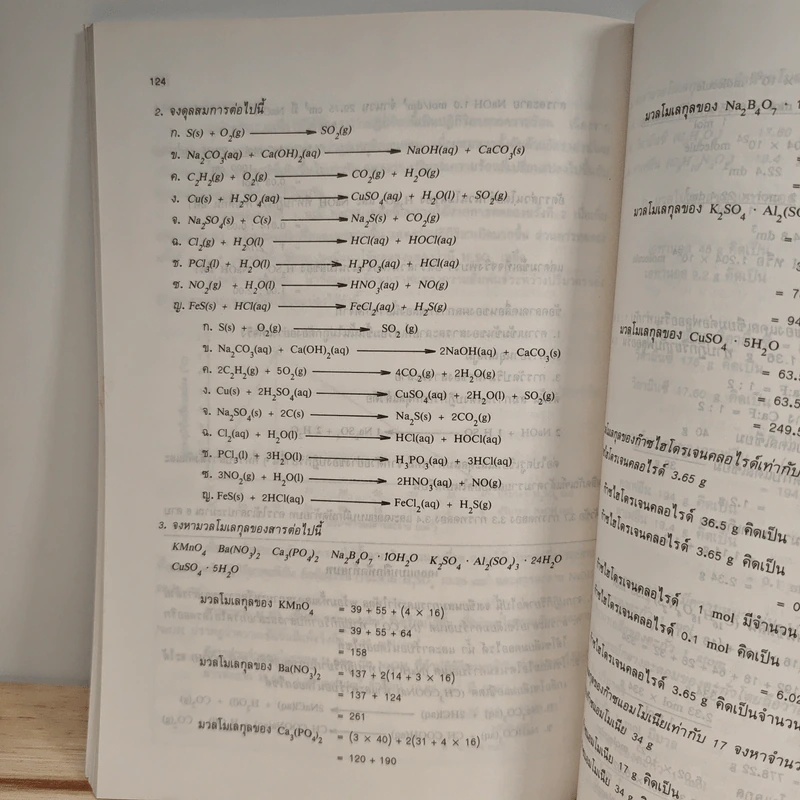 124
2. จงดุลสมการต่อไปนี้
ก. S(s) + O₂(g) ⟶ SO₂(g)
ข. Na₂CO₃(aq) + Ca(OH)₂(aq) ⟶ NaOH(aq) + CaCO₃(s)
ค. C₂H₂(g) + O₂(g) ⟶ CO₂(g) + H₂O(g)
ง. Cu(s) + H₂SO₄(aq) ⟶ CuSO₄(aq) + H₂O(l) + SO₂(g)
จ. Na₂SO₄(s) + C(s) ⟶ Na₂S(s) + CO₂(g)
ฉ. Cl₂(g) + H₂O(l) ⟶ HCl(aq) + HOCl(aq)
ช. PCl₃(l) + H₂O(l) ⟶ H₃PO₃(aq) + HCl(aq)
ซ. NO₂(g) + H₂O(l) ⟶ HNO₃(aq) + NO(g)
ญ. FeS(s) + HCl(aq) ⟶ FeCl₂(aq) + H₂S(g)
ก. S(s) + O₂(g) ⟶ SO₂ (g)
ข. Na₂CO₃(aq) + Ca(OH)₂(aq) ⟶ 2NaOH(aq) + CaCO₃(s)
ค. 2C₂H₂(g) + 5O₂(g) ⟶ 4CO₂(g) + 2H₂O(g)
ง. Cu(s) + 2H₂SO₄(aq) ⟶ CuSO₄(aq) + 2H₂O(l) + SO₂(g)
จ. Na₂SO₄(s) + 2C(s) ⟶ Na₂S(s) + 2CO₂(g)
ฉ. Cl₂(aq) + H₂O(l) ⟶ HCl(aq) + HOCl(aq)
ช. PCl₃(l) + 3H₂O(l) ⟶ H₃PO₃(aq) + 3HCl(aq)
ซ. 3NO₂(g) + H₂O(l) ⟶ 2HNO₃(aq) + NO(g)
ญ. FeS(s) + 2HCl(aq) ⟶ FeCl₂(aq) + H₂S(g)
3. จงหามวลโมเลกุลของสารต่อไปนี้
KMnO₄ Ba(NO₃)₂ Ca₃(PO₄)₂ Na₂B₄O₇ · 10H₂O K₂SO₄ · Al₂(SO₄)₃ · 24H₂O
CuSO₄ · 5H₂O
มวลโมเลกุลของ KMnO₄ = 39 + 55 + (4 × 16)
= 39 + 55 + 64
= 158
มวลโมเลกุลของ Ba(NO₃)₂ = 137 + 2(14 + 3 × 16)
= 137 + 124
= 261
มวลโมเลกุลของ Ca₃(PO₄)₂ = (3 × 40) + 2(31 + 4 × 16)
= 120 + 190
มวลโมเลกุลของ Na₂B₄O₇ ·
=
=
มวลโมเลกุลของ K₂SO₄ · Al₂(SO
=
=
= 7
= 94
มวลโมเลกุลของ CuSO₄ · 5H₂O
= 63.5
= 63.5
= 249.5
โมเลกุลของก๊าซไฮโดรเจนคลอไรด์เท่ากับ
ไฮโดรเจนคลอไรด์ 3.65 g
ก๊าซไฮโดรเจนคลอไรด์ 36.5 g คิดเป็น
ก๊าซไฮโดรเจนคลอไรด์ 3.65 g คิดเป็น
= 0
ก๊าซไฮโดรเจนคลอไรด์ 1 mol มีจำนวน
ก๊าซไฮโดรเจนคลอไรด์ 0.1 mol คิดเป็น
= 6.02
ก๊าซไฮโดรเจนคลอไรด์ 3.65 g คิดเป็นจำนวน
ของก๊าซแอมโมเนียเท่ากับ 17 จงหาจำนวน
ก๊าซแอมโมเนีย 34 g
แอมโมเนีย 17 g คิดเป็น
แอมโมเนีย 34 g คิดเป็น